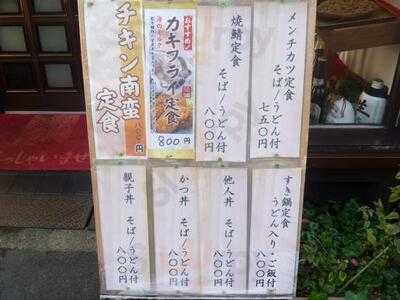 メンチカツ定食
そば/うどん付
七五〇円
焼鯖定食
そば/うどん付
八〇〇円
おすすめ
カキフライ定食
海のミルク
800円
チキン南蛮
定食
八〇〇円
すき鍋定食
うどん入り・ご飯付
八〇〇円
他人丼
そば/うどん付
八〇〇円
かつ丼
そば/うどん付
八〇〇円
親子丼
そば/うどん付
八〇〇円
っしゃいませ